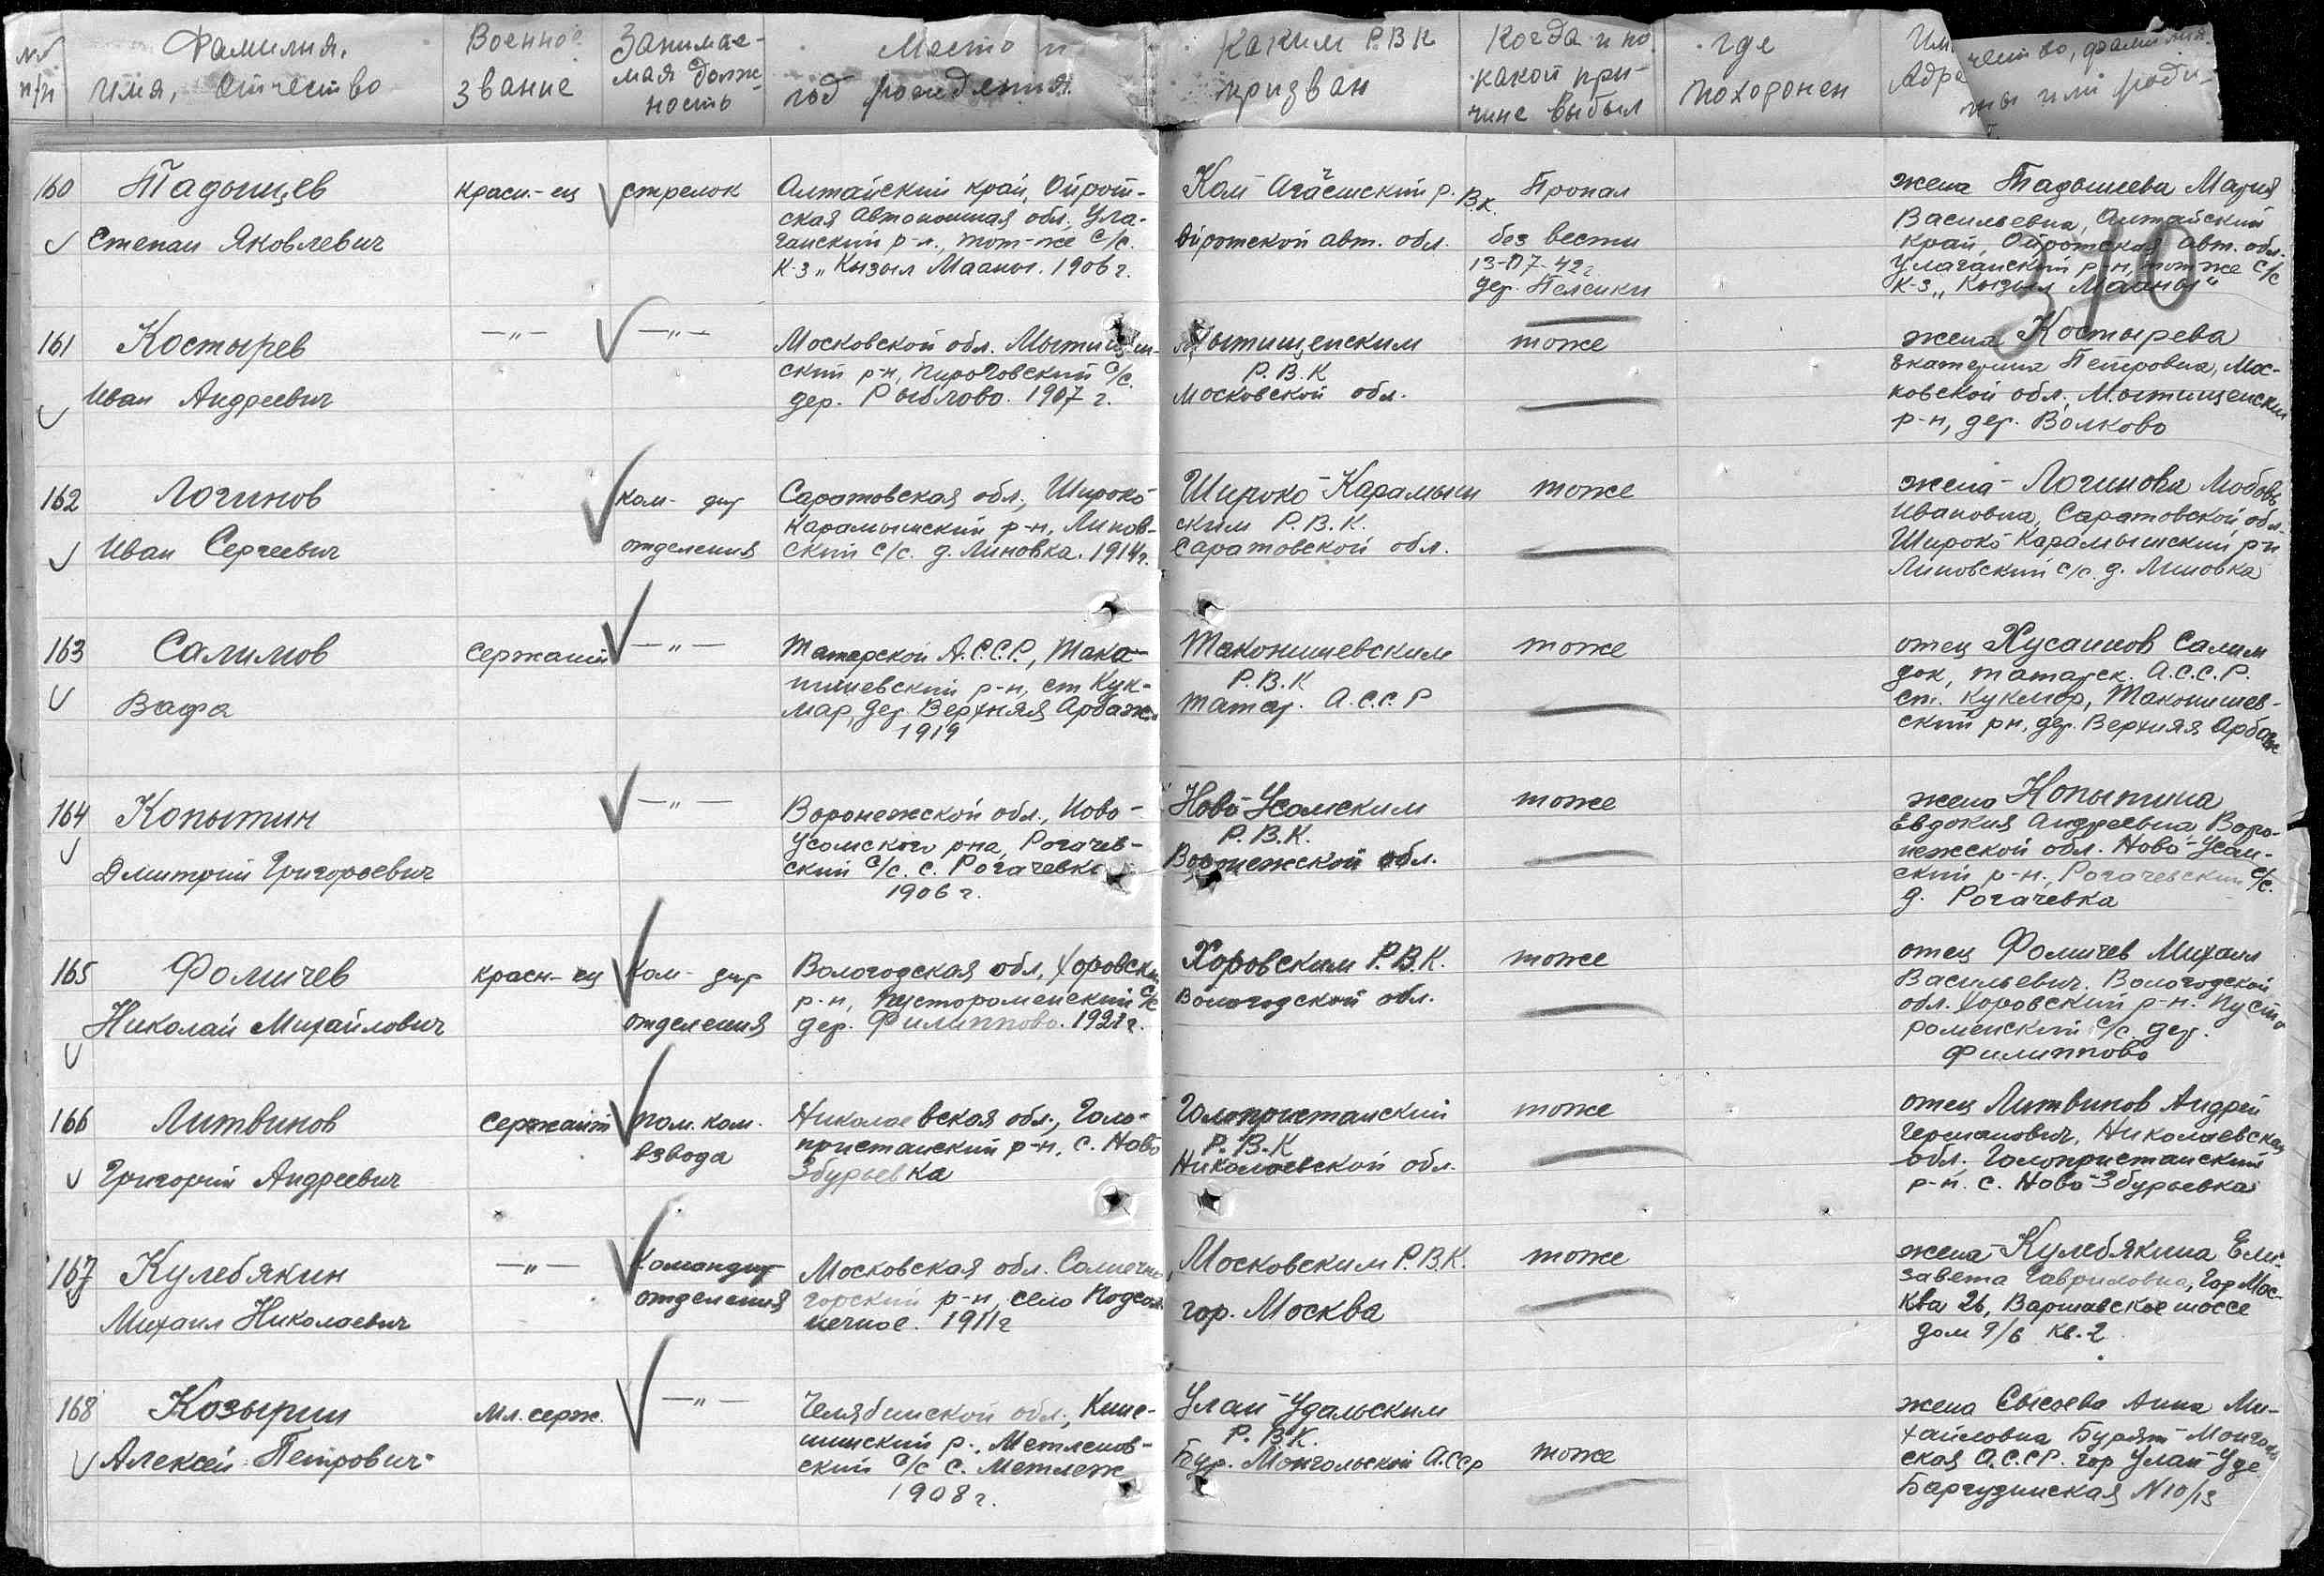 № п/п
Фамилия, имя, отчество
Военное звание
Занимае-
мая долж-
ность
Место и
год рождения
Каким Р.В.К
призван
Когда и по
какой при-
чине выбыл
где
похоронен
Им
Адре
чество, фамилия
ны или роди-
160
Тадышев
Степан Яковлевич
красн.-ец
стрелок
Алтайский край, Ойрот-
ская автономная обл., Ула-
ганский р-н, тот-же с/с.
к-з „Кызыл Мааны. 1906 г.
Кош Агачский р.
В.к.
Ойротской авт. обл.
Пропал
без вести
13-07-42 г
дер.
жена Тадышева Мария
Васильевна, Алтайский
край, Ойротская авт. обл.
Улаганский р-н, тот же с/с
К-з „Кызыл Мааны"
370
161
Костырев
Иван Андреевич
—„—
—„—
Московской обл. Мытищен-
ский р-н, Пироговский с/с.
дер. 1907 г.
Мытищенским
Р.В.К
Московской обл.
тоже
жена Костырева
Екатерина Петровна, Мос-
ковской обл., Мытищенский
р-н, дер. Волково
162
Логинов
Иван Сергеевич
ком-дир
отделения
Саратовская обл., Широко-
Карамышский р-н, Липов-
ский с/с. д. Липовка. 1914г.
Широко-Карамыш
ским Р.В.К.
Саратовской обл.
тоже
жена - Логинова Любовь
Ивановна, Саратовской обл.
Широко Карамышский р-н
Липовский с/с. д. Липовка
163
Салимов
Вафа
сержант
—„—
Татарской А.С.С.Р., Мака-
нишевский р-н, ст Кук-
мар, дер. Верхняя Арбаж.
1919
Маконишевским
Р.В.К
Татар. А.С.С.Р
тоже
отец Хусаинов Салим
док, татарск. А.С.С.Р.
ст. Кукмор, Маконишев-
ский рн, дер. Верхняя Арбаж
164
Копытин
Дмитрий Григорьевич
—„—
Воронежской обл., Ново-
Усманского рна, Рогачев-
ский с/с. с. Рогачевка
1906 г.
Ново-Усманским
Р.В.К.
Воронежской обл.
тоже
жена Копытина
Евдокия Андреевна, Воро-
нежской обл. Ново-Усман-
ский р-н, Рогачевский с/с.
д. Рогачевка
165
Фомичев
Николай Михайлович
красн-ец
ком-дир
отделения
Вологодская обл, Харовский
р-н, Пустораменский с/с
дер. Филиппово. 1921 г.
Харовским Р.В.К.
Вологодской обл.
тоже
отец Фомичев Михаил
Васильевич. Вологодской
обл. Харовский р-н. Пусто
раменский с/с дер.
Филиппово
166
Литвинов
Григорий Андреевич
сержант
пом. ком.
взвода
Николаевская обл., Голо-
пристанский р-н, с. Ново
Збурьевка
Голопристанский
Р.В.К
Николаевской обл.
тоже
отец Литвинов Андрей
Германович, Николаевская
обл., Голопристанский
р-н. с. Ново-Збурьевка
167
Кулебякин
Михаил Николаевич
—„—
командир
отделения
Московская обл. Солнечно
горский р-н, село Подсол-
нечное. 1911г
Московским Р.В.К.
гор. Москва
тоже
жена - Кулебякина Ели-
завета Гавриловна, гор Мос-
ква 26, Варшавское шоссе
дом 9/6 кв. 2
168
Козырин
Алексей Петрович
Мл. серж.
—„—
Челябинской обл.,
р., Метленов-
ский с/с с.
1908 г.
Улан-Удэльским
Р.В.К.
Бур. Монгольской А.ССР
тоже
жена Сысоева Анна Ми-
хайловна Бурят-Монголь
ская А.С.С.Р. гор Улан-Удэ
Баргузинская N10/13